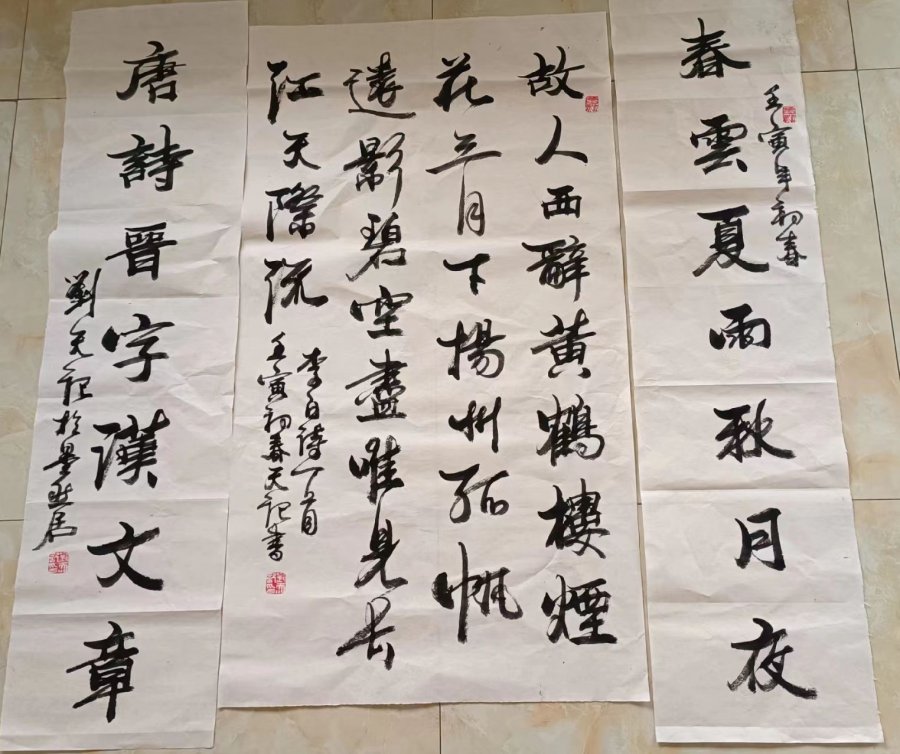 春雲夏雨秋月夜
壬寅年初春
故人西辭黄鶴樓煙
花三月下揚州孤帆
遠影碧空盡唯見長
江天際流
李白詩一首
壬寅初春天記書
唐詩晉字漢文章
劉天記於墨居